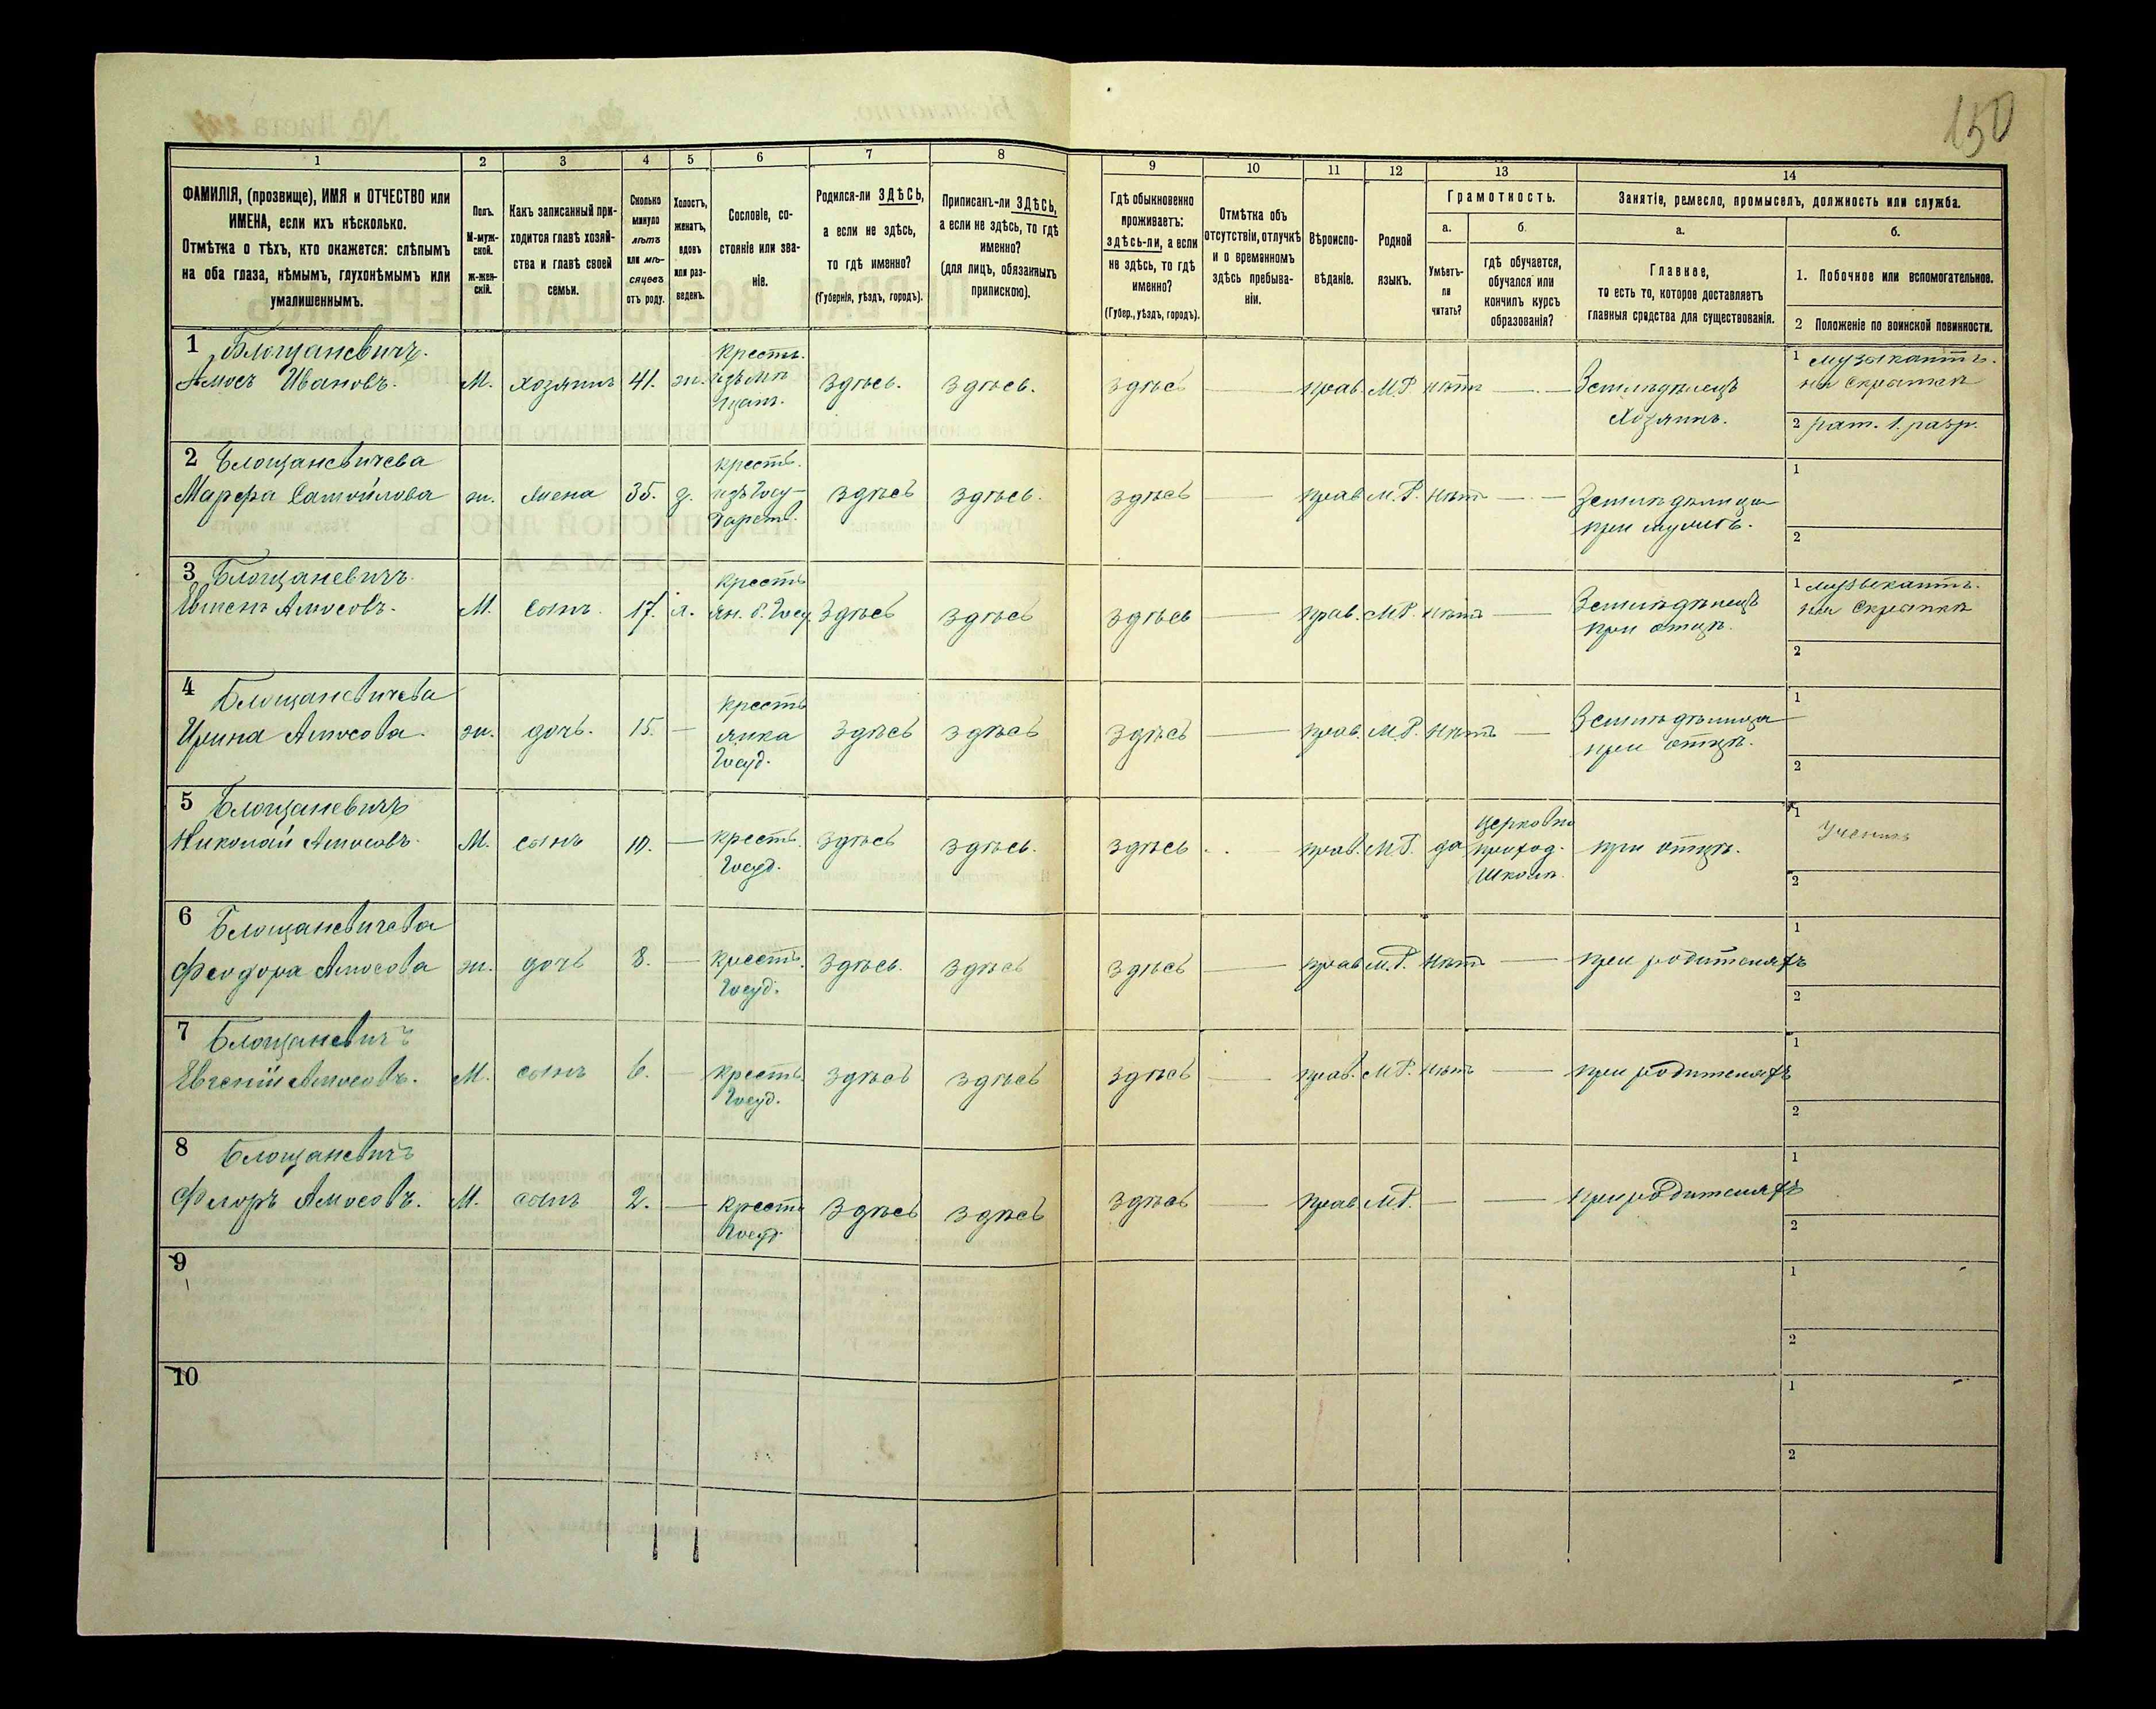 150
1
2
3
4
5
6
7
8
9
10
11
12
13
14
ФАМИЛІЯ, (прозвище), ИМЯ и ОТЧЕСТВО или
ИМЕНА, если ихъ нѣсколько.
Отмѣтка о тѣхъ, кто окажется: слѣпымъ
на оба глаза, нѣмымъ, глухонѣмымъ или
умалишеннымъ.
Полъ.
М-муж-
ской.
ж-жен-
скій.
Какъ записанный при-
ходится главѣ хозяй-
ства и главѣ своей
семьи.
Сколько
минуло
лѣтъ
или мѣ-
сяцевъ
отъ роду.
Холостъ,
женатъ,
вдовъ
или раз-
веденъ.
Сословіе, со-
стояніе или зва-
ніе.
Родился-ли ЗДѢСЬ,
а если не здѣсь,
то гдѣ именно?
(Губернія, уѣздъ, городъ).
Приписанъ-ли ЗДѢСЬ,
а если не здѣсь, то гдѣ
именно?
(для лицъ, обязанныхъ
припискою).
Гдѣ обыкновенно
проживаетъ:
здѣсь-ли, а если
не здѣсь, то гдѣ
именно?
(Губер., уѣздъ, городъ).
Отмѣтка объ
отсутствіи, отлучкѣ
и о временномъ
здѣсь пребыва-
ніи.
Вѣроиспо-
вѣданіе.
Родной
языкъ.
Грамотность.
а.
Умѣетъ-
ли
читать?
б.
гдѣ обучается,
обучался или
кончилъ курсъ
образованія?
Занятіе, ремесло, промыселъ, должность или служба.
а.
Главное,
то есть то, которое доставляетъ
главныя средства для существованія.
б.
1. Побочное или вспомогательное.
2 Положеніе по воинской повинности.
1 Блощаневичъ.
Амосъ Ивановъ.
М.
хозяинъ
41.
ж.
Крестъ.
здѣсь.
здѣсь.
здѣсь
прав.
М.Р.
нѣтъ
Земледѣлецъ
Хозяинъ.
1 музыкантъ.
на скрипкѣ
2 рат. 1. разр.
2 Блощаневичева
Марфа Самойлова
ж.
жена
35.
крест.
изъ Госу-
дарств.
здѣсь
здѣсь.
здѣсь
прав.
М.Р.
нѣтъ
Земледѣлица
при мужѣ.
1
2
3 Блощаневичъ.
Евменъ Амосовъ.
М.
сынъ
17.
х.
крестъ
ян. б. Госу
здѣсь
здѣсь
здѣсь
прав.
М.Р.
нѣтъ
Земледѣлецъ
при отцѣ.
1 музыкантъ.
на скрипкѣ
2
4 Блощаневичева
Ирина Амосова.
ж.
дочь.
15.
крестъ
янка
Госуд.
здѣсь
здѣсь
здѣсь
прав.
М.Р.
нѣтъ
Земледѣлица
при отцѣ.
1
2
5 Блощаневичъ
Николай Амосовъ.
М.
сынъ
10.
крестъ.
Госуд.
здѣсь
здѣсь.
здѣсь
прав.
М.Р.
да
церковно
приход.
школѣ.
при отцѣ.
1 Ученикъ
2
6 Блощаневичева
Феодора Амосова
ж.
дочь
8.
Крестъ.
Госуд.
здѣсь.
здѣсь
здѣсь
прав.
М.Р.
нѣтъ
при родителяхъ
1
2
7 Блощаневичъ
Евгеній Амосовъ.
М.
сынъ
6.
крестъ.
Госуд.
здѣсь
здѣсь
здѣсь
прав.
М.Р.
нѣтъ
при родителяхъ
1
2
8 Блощаневичъ
Флоръ Амосовъ.
М.
сынъ
2.
крестъ
Госуд.
здѣсь
здѣсь
здѣсь
прав
М.Р.
при родителяхъ
1
2
9
1
2
10
1
2